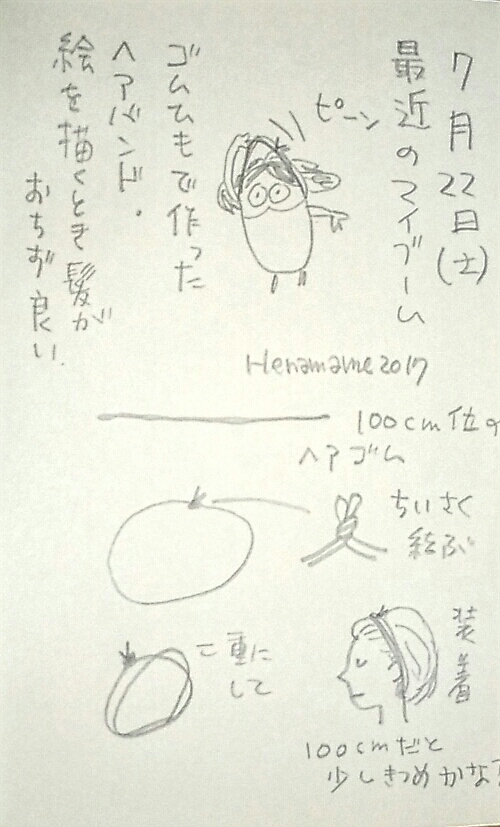 7月22日(土)
最近のマイブーム
ピーン
ゴムひもで作った
ヘアバンド.
絵を描くとき髪が
おちず良い.
Henamame2017
100cm位の
ヘアゴム
ちいさく
結ぶ
二重に
して
装着
100cmだと
少しきつめかな?